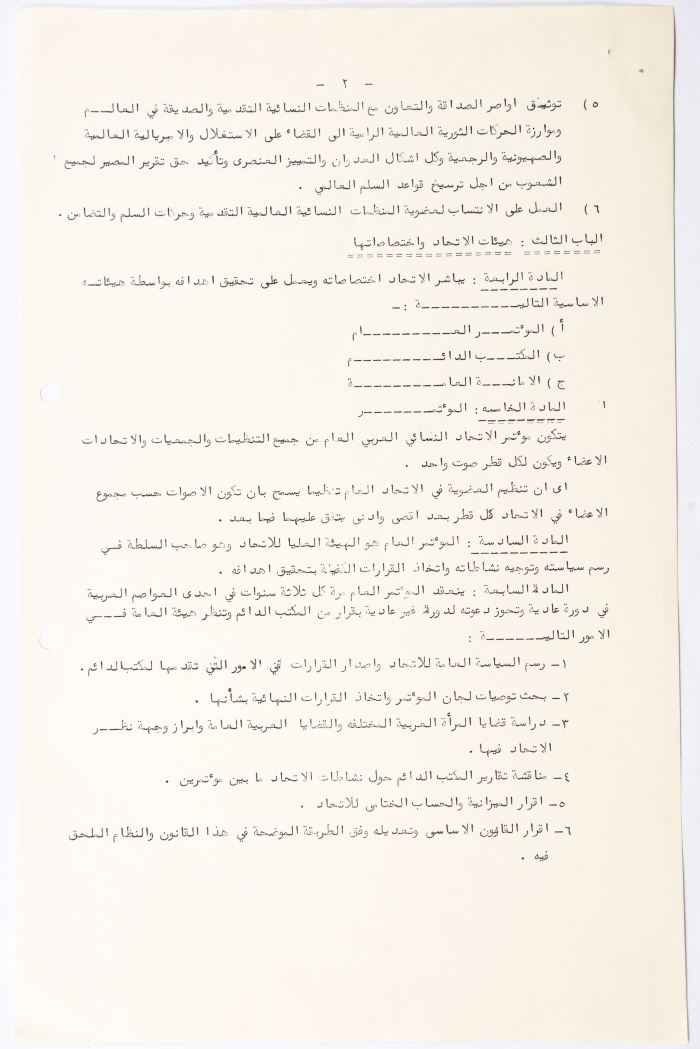 - ٢ -
٥) توثيق اواصر الصداقة والتعاون مع المنظمات النسائية التقدمية والصديقة في العالـــم
وموارزة الحركات الثورية العالمية الرامية الى القضاء على الاستغلال والامبريالية العالمية
والصهيونية والرجعية وكل اشكال العدوان والتمييز العنصرى وتأكيد حق تقرير المصير لجميع
الشعوب من اجل ترسيخ قواعد السلم العالمي .
٦) العمل على الانتساب لعضوية المنظمات النسائية العالمية التقدمية وحركات السلم والتضامن .
الباب الثالث : هيئات الاتحاد واختصاصاتها
المادة الرابعة : يباشر الاتحاد اختصاصاته ويعمل على تحقيق اهدافه بواسطة هيئاتــه
الاساسية التاليــــــــــة : ـ
أ) المؤتمـــر العـــــــــام
ب) المكتـــب الدائـــــــــم
ج) الامانـــة العامـــــــــة
المادة الخامسه : المؤتمـــــــر
يتكون مؤتمر الاتحاد النسائي العربي العام من جميع التنظيمات والجمعيات والاتحادات
الاعضاء ويكون لكل قطر صوت واحد .
اى ان تنظيم العضوية في الاتحاد العام تنظيما يسمح بان تكون الاصوات حسب مجموع
الاعضاء في الاتحاد كل قطر بعد اقصى وادنى يتفق عليهما فيما بعد .
المادة السادسة : المؤتمر العام هو الهيئة العليا للاتحاد وهو صاحب السلطة فــي
رسم سياسته وتوجيه نشاطاته واتخاذ القرارات الكفيلة بتحقيق اهدافه .
المادة السابعة : ينعقد المؤتمر العام مرة كل ثلاثة سنوات في احدى العواصم العربية
في دورة عادية وتجوز دعوته لدورة غير عادية بقرار من المكتب الدائم وتنظر هيئة العامة فـــي
الامور التاليــــــــة :
١- رسم السياسة العامة للاتحاد واصدار القرارات في الامور التي تقدمها لمكتبالدائم .
٢- بحث توصيات لجان المؤتمر واتخاذ القرارات النهائية بشأنها .
٣- دراسة قضايا المرأة العربية المختلفه والقضايا العربية العامة وابراز وجهة نظـــر
الاتحاد فيها .
٤- مناقشة تقارير المكتب الدائم حول نشاطات الاتحاد ما بين مؤتمرين .
٥- اقرار الميزانية والحساب الختامى للاتحاد .
٦- اقرار القانون الاساسى وتعديله وفق الطريقة الموضحة في هذا القانون والنظام الملحق
فيه .